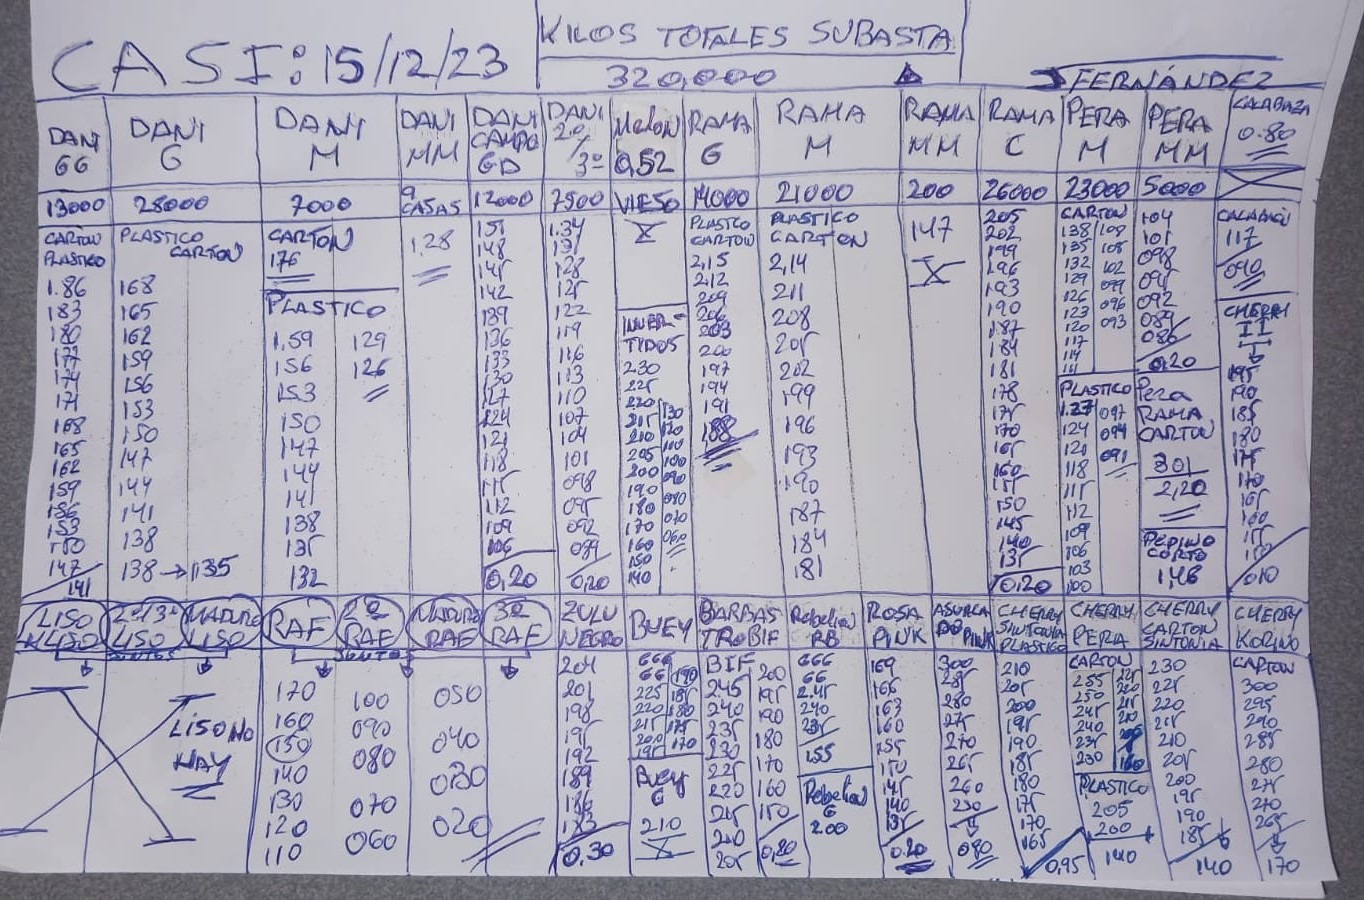 CASI: 15/12/23
KILOS TOTALES SUBASTA
320,000
FERNÁNDEZ
DANI GG
13000
CARTON
PLASTICO
1.86
183
180
177
174
171
168
165
162
159
156
153
150
147
141
DANI G
28000
PLASTICO
CARTON
168
165
162
159
156
153
150
147
144
141
138
138 → 135
DANI M
7000
CARTON
176
PLASTICO
1.59 129
156 126
153
150
147
144
141
138
135
132
DANI MM
9 CASAS
1.28
DANI CAMPO GD
12000
151
148
145
142
139
136
133
130
127
124
121
118
115
112
109
106
0,20
DANI 2º/3º
7500
1.34
131
128
125
122
119
116
113
110
107
104
101
098
095
092
089
0,20
Melon
0,52
VIESO
X
INVER-
TIDOS
230
225
220 130
215 120
210 110
205 100
200 090
190 080
180 070
170 060
160
150
140
RAMA G
14000
PLASTCO
CARTON
2,15
2,12
209
206
203
200
197
194
191
188
RAMA M
21000
PLASTICO
CARTON
2,14
211
208
205
202
199
196
193
190
187
184
181
RAMA MM
200
147
X
RAMA C
26000
205
202
199
196
193
190
187
184
181
178
175
170
165
160
155
150
145
140
135
0,20
PERA M
23000
CARTON
138 108
135 105
132 102
129 099
126 096
123 093
120
117
114
111
PLASTICO
1.27 097
124 094
121 091
118
115
112
109
106
103
100
PERA MM
5000
104
101
098
095
092
089
086
0,20
Pera
RAMA
CARTON
301
2,20
PEPINO
CORTO
146
CALABAZA
0.80
CALABACIN
117
090
CHERRY
II
195
190
185
180
175
170
165
160
155
150
010
LISO
M LISO
2º/3º
LISO
MADURO
LISO
JUNTOS
LISO NO
HAY
RAF
170
160
150
140
130
120
110
2º
RAF
JUNTO
100
090
080
070
060
MADURO
RAF
050
040
030
020
3º
RAF
ZULU
NEGRO
204
201
198
195
192
189
186
183
0,30
BUEY
666
66 190
225 185
220 180
215 175
200 170
195
BUEY
G
210
X
BARBAS
TRO BIF
BIF 200
245 195
240 190
235 180
230 170
225 160
220 150
215 0,80
210
205
Rebelion
RB
666
66
2.45
240
235
155
Rebelion
G
200
ROSA
PINK
169
166
163
160
155
150
145
140
135
0.20
ASURCADO PINK
300
285
280
275
270
265
260
230
080
CHERRY
SINTONIA
PLASTICO
210
205
200
195
190
185
180
175
170
165
0,95
CHERRY
PERA
CARTON
255 225
250 220
245 215
240 210
235 205
230 160
PLASTICO
205
200
140
CHERRY
CARTON
SINTONIA
230
225
220
215
210
205
200
195
190
185
140
CHERRY
KORINO
CARTON
300
295
290
285
280
275
270
265
170